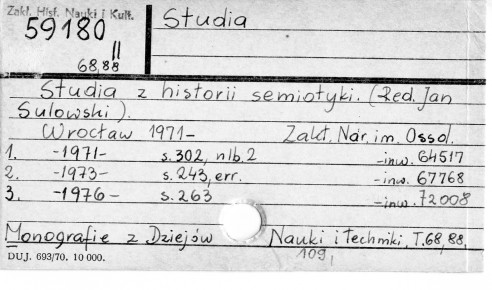 Zakł. Hist. Nauki i Kult.
59180
II
68,88
Studia
Studia z historii semiotyki. (Red. Jan
Sulowski).
Wrocław 1971- Zakł. Nar. im. Ossol.
1. -1971- s. 302, nlb. 2 -inw. 64517
2. -1973- s. 243, err. -inw. 67768
3. -1976- s. 263 -inw. 72008
Monografie z Dziejów Nauki i Techniki, T. 68, 88,
109,
DUJ. 693/70. 10 000.